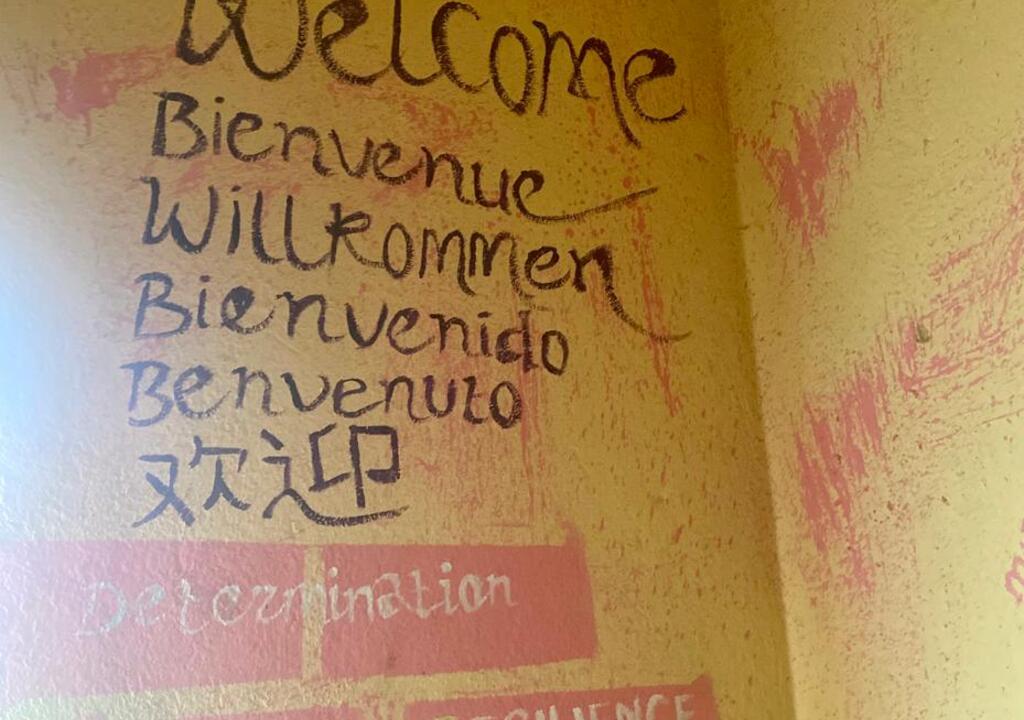 Welcome
Bienvenue
Willkommen
Bienvenido
Benvenuto
欢迎
Determination
RESILIENCE